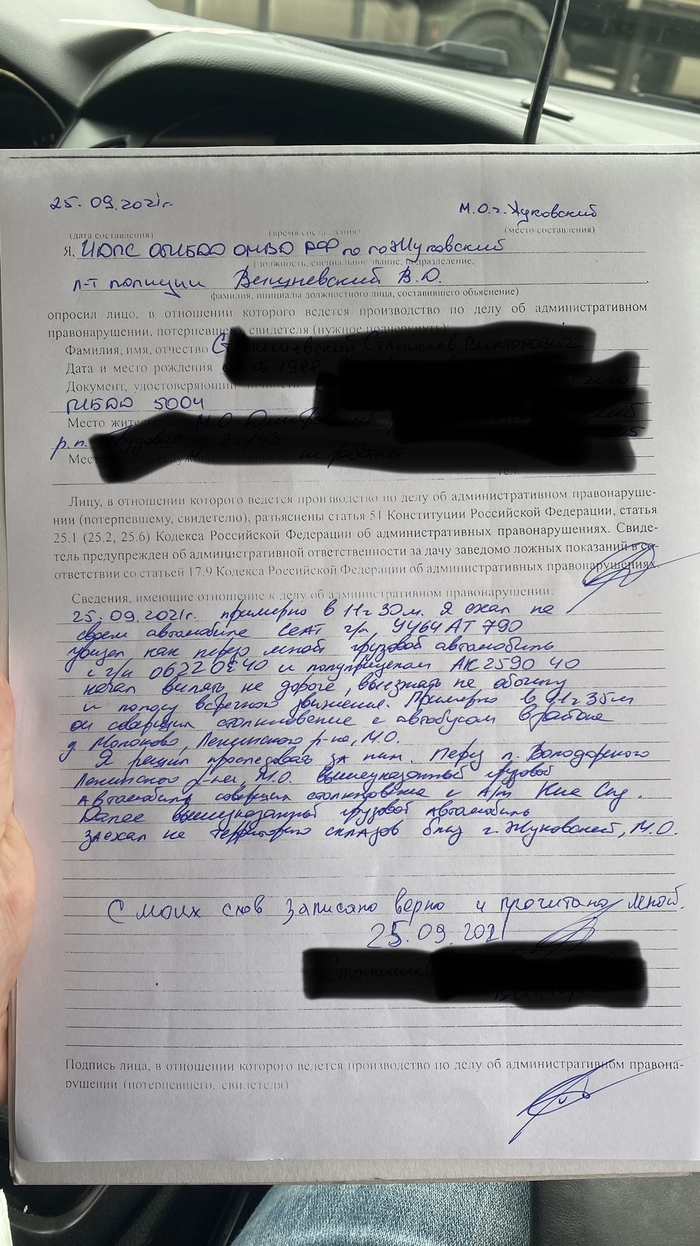 25.09.2021г. М.О.г. Жуковский
(дата составления) (время составления) (место составления)
Я, ИДПС ОГИБДД ОМВД РФ по г.о. Жуковский
(должность, специальное звание, подразделение,
л-т полиции В.О.
фамилия, инициалы должностного лица, составившего объяснение)
опросил лицо, в отношении которого ведется производство по делу об административном
правонарушении, потерпевшего, свидетеля (нужное подчеркнуть)
Фамилия, имя, отчество
Дата и место рождения
Документ, удостоверяющий личность
ГИБДД 5004
Место
р.п.
Мес
Лицу, в отношении которого ведется производство по делу об административном правонаруше-
нии (потерпевшему, свидетелю), разъяснены статья 51 Конституции Российской Федерации, статья
25.1 (25.2, 25.6) Кодекса Российской Федерации об административных правонарушениях. Свиде-
тель предупрежден об административной ответственности за дачу заведомо ложных показаний в со-
ответствии со статьей 17.9 Кодекса Российской Федерации об административных правонарушениях.
Сведения, имеющие отношение к делу об административном правонарушении:
25.09.2021г. примерно в 11ч 30м. Я ехал на
своем автомобиле Сеат г/н У464АТ 790
увидел как перед мной грузовой автомобиль
с г/н 0622 40 и полуприцепом АК2590 40
начал вилять на дороге, выезжать на обочину
и полосу встречного движения. Примерно в 11ч 35м
он совершил столкновение с автобусом в районе
д Молоково, Ленинского р-на, М.О.
Я решил проследовать за ним. Перед п. Володарского
Ленинского р-на, М.О. вышеуказанный грузовой
Автомобиль совершил столкновение с А/м Киа Сид.
Далее вышеуказанный грузовой Автомобиль
заехал на территорию складов близ г. Жуковский, М.О.
С моих слов записано верно и прочитано мной.
25.09.2021
Подпись лица, в отношении которого ведется производство по делу об административном правона-
рушении (потерпевшего, свидетеля)